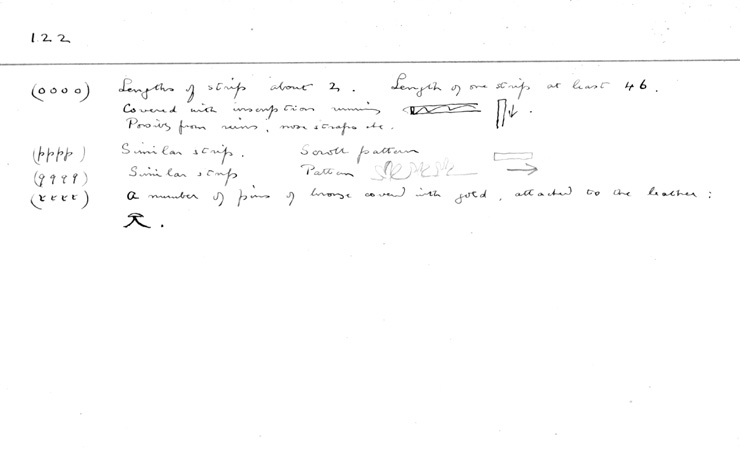 122
(oooo) Lengths of strip about 2. Length of one strip at least 46.
Covered with inscription running
Possibly from reins, nose straps etc.
(pppp) Similar strip. Scroll pattern
(qqqq) Similar strip Pattern
(rrrr) A number of pins of bronze covered with gold, attached to the leather: